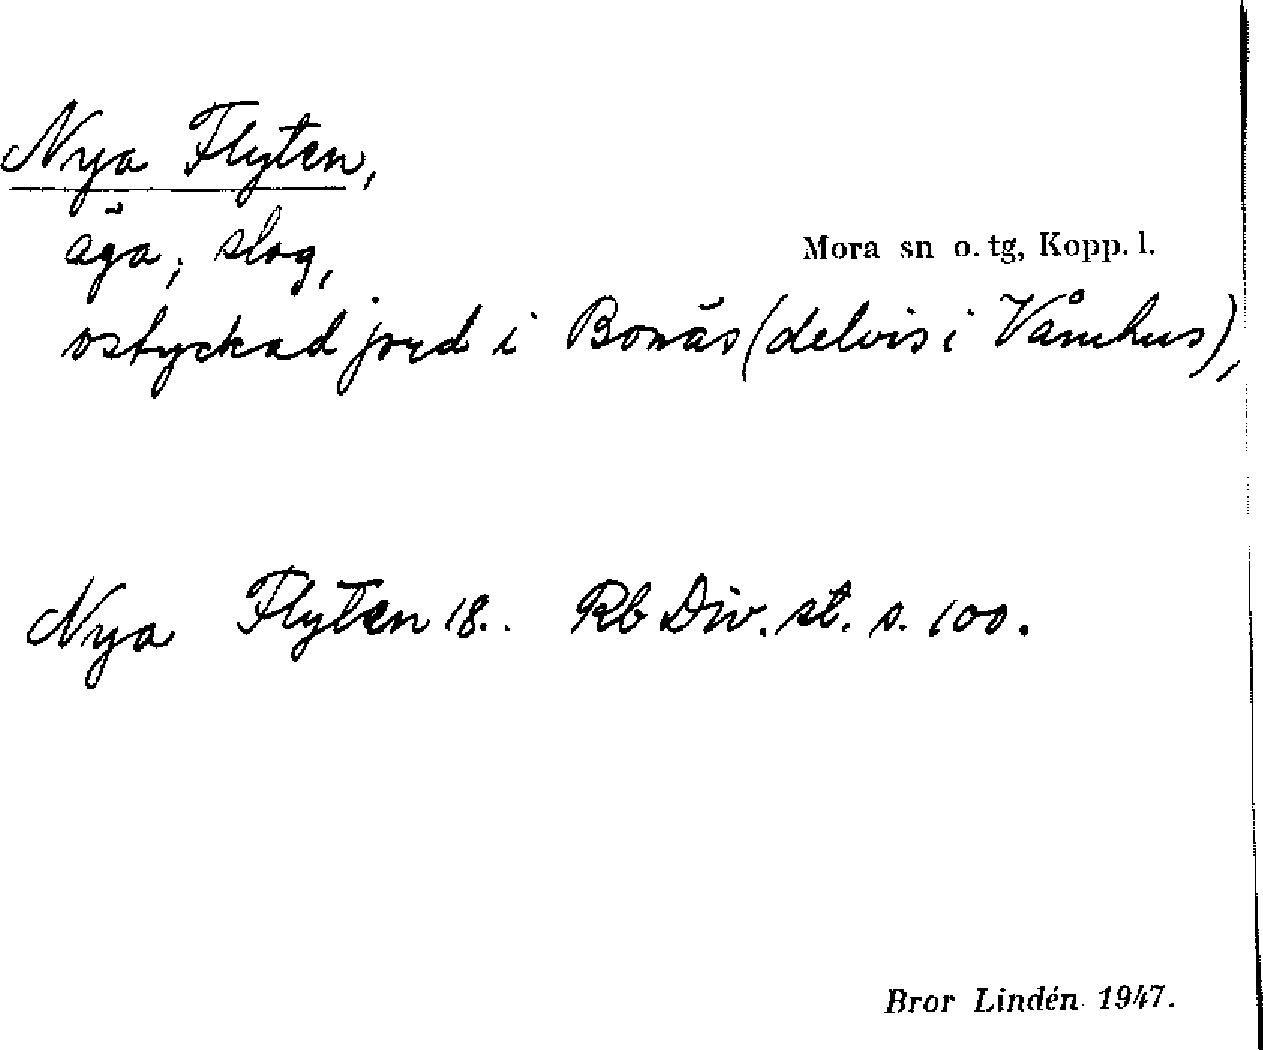 Nya Flyten,
äga, slog,
Mora sn o. tg, Kopp. l.
ostyckad jord i Bonäs (delvis i Våmhus),
Nya Flyten 18.. Rb Div. st. s. 100.
Bror Lindén 1947.